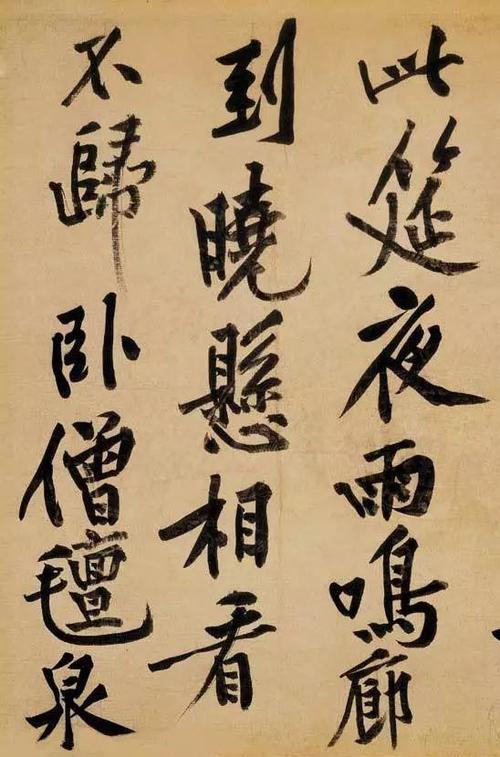 此筵夜雨鳴廊
到曉懸相看
不歸卧僧氊泉